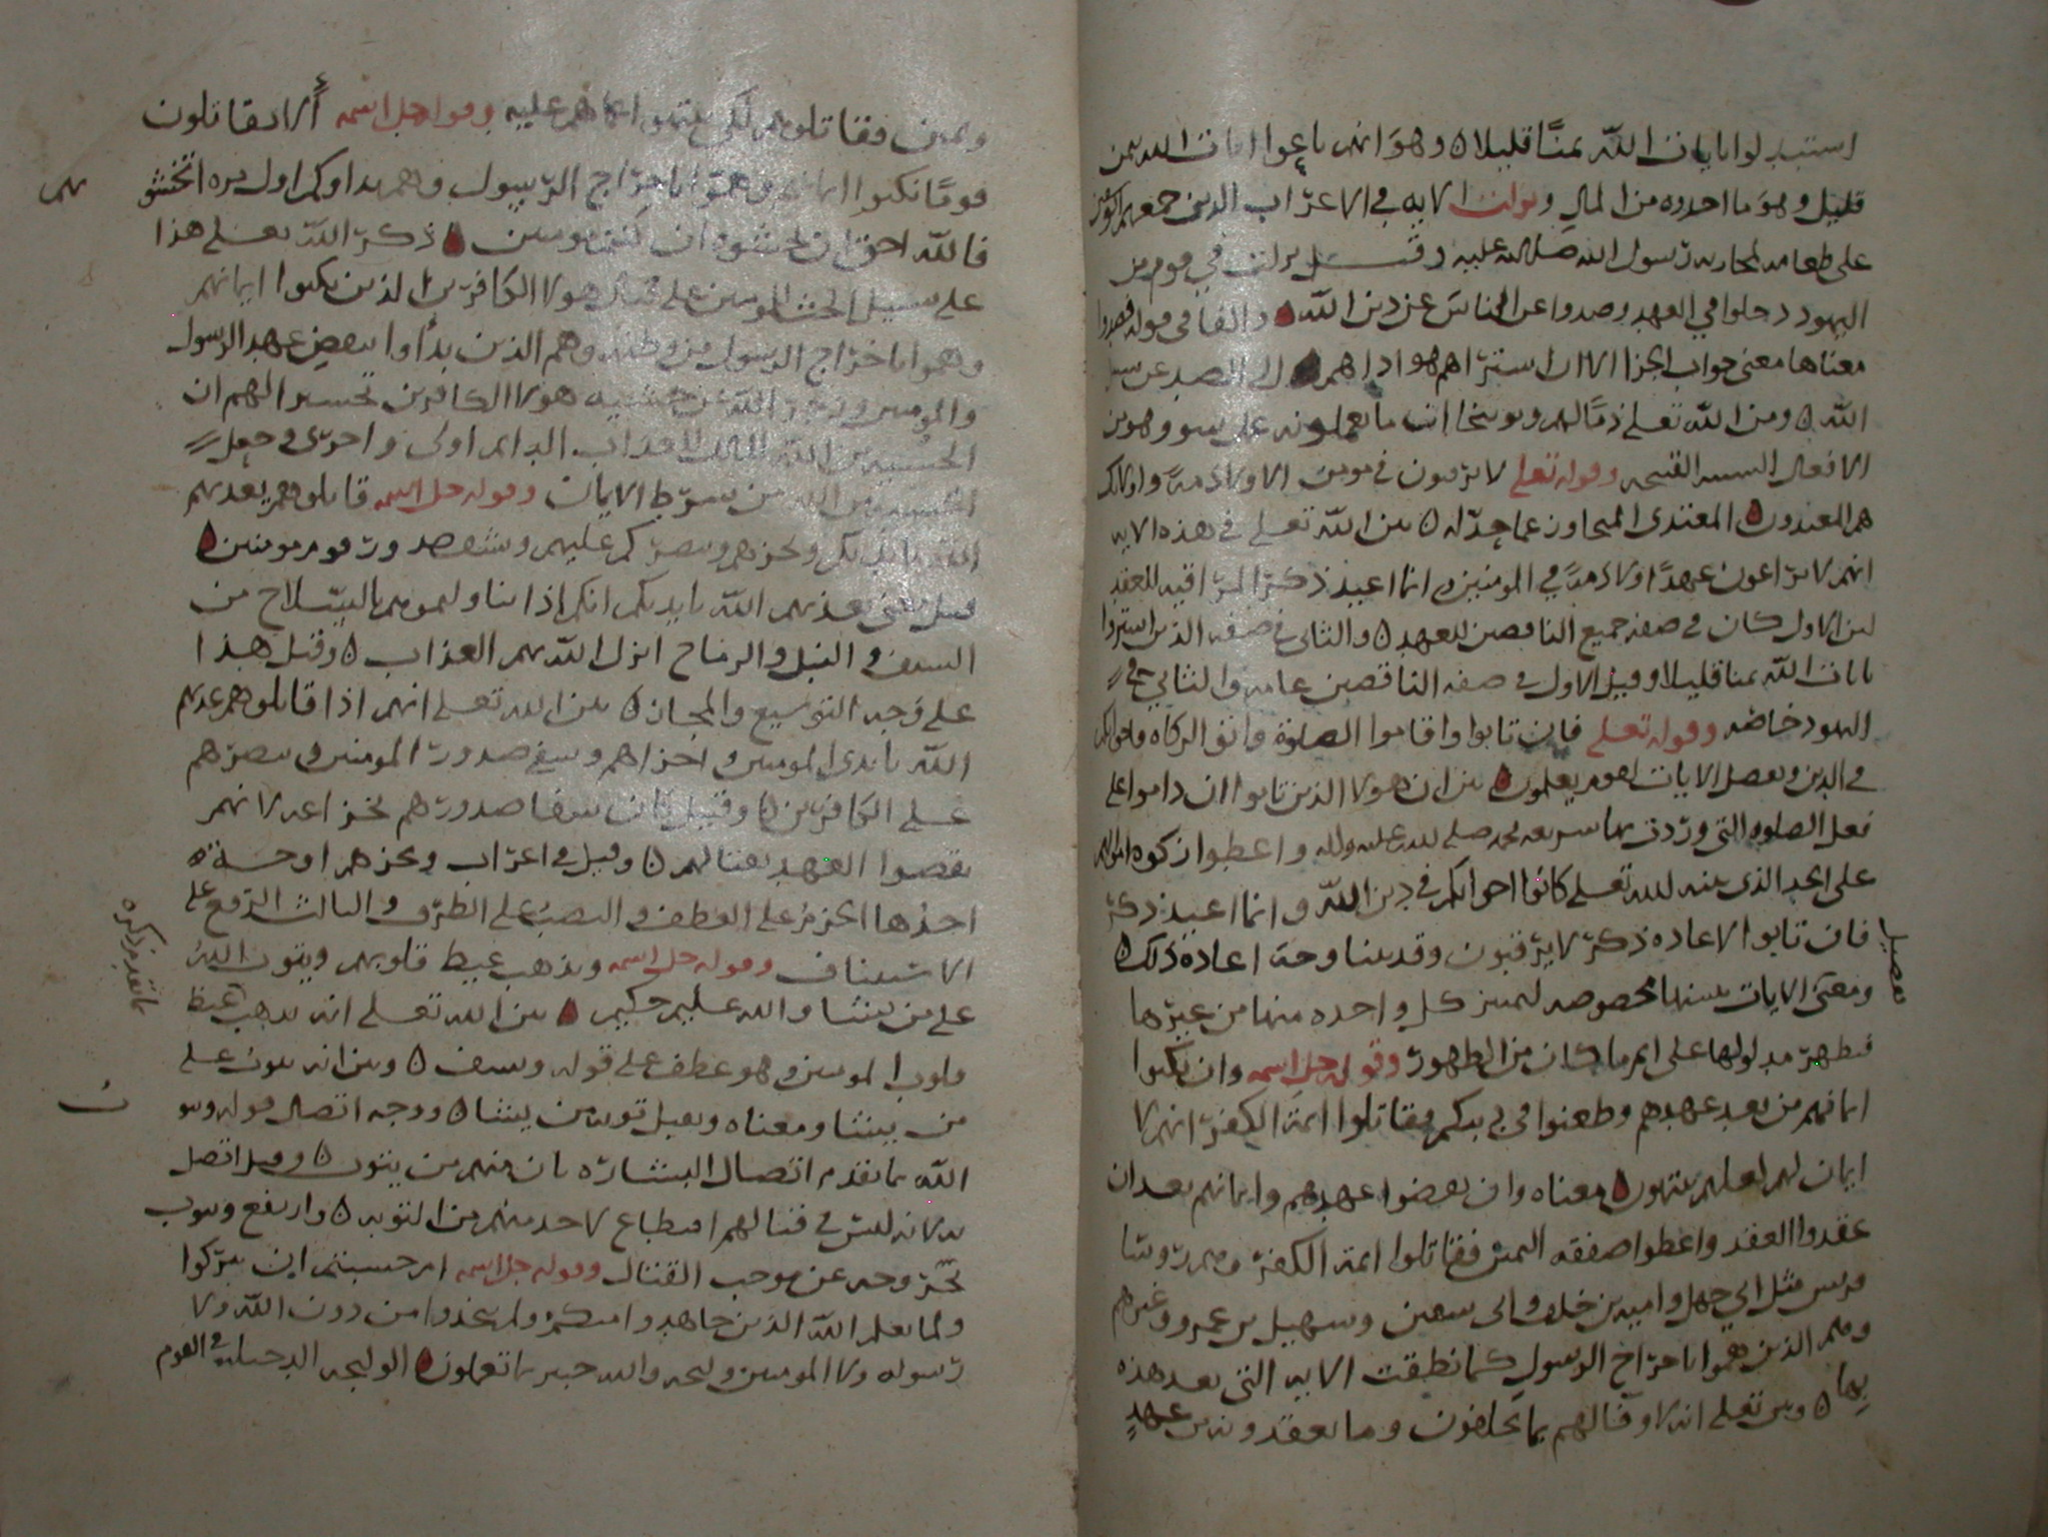 استبدلوا بايات الله ثمنا قليلا ه وهو انهم باعوا ايمانات الله بثمن
قليل وهو ما اخذوه من المال ونزلت الايه في الاعراب الذين جمعهم ابو سفين
على طعامه لمحاربه رسول الله صلى الله عليه وقيل نزلت في قوم من
اليهود دخلوا في العهد وصدوا عن الناس عن دين الله والفا في قوله فصدوا
معناها معنى جواب الجزا لان اشتراهم هوا اداهم الى الصد عن سبيل
الله ه وبين الله تعلى ذما لهم وتوبيخا ان ما يعملونه عمل سو وهو من
الافعال القبيحه وقوله تعلى لا يرقبون في مومن الا ولا ذمة واولئك
هم المعتدون ه المعتدي المتجاوز عما حد له ه بين الله تعلى في هذه الايه
انهم لا يراعون عهدا ولا ذمة في المومنين ه انما اعيد ذكر المراقبه للعقد
لان الاول كان في صفه جميع الناقضين للعهد ه والثاني في صفه الذين اشتروا
بايات الله ثمنا قليلا وقيل الاول في صفه الناقضين عامه والثاني في
اليهود خاصه وقوله تعلى فان تابوا واقاموا الصلوة واتوا الزكاه فاخوانكم
في الدين ونفصل الايات لقوم يعلمون ه بين ان هولا الذين تابوا ان داموا على
فعل الصلوه التي وردت بها شريعه محمد صلى الله عليه واله واعطوا زكوه اموالهم
على الحد الذي بينه الله تعلى كانوا اخوانكم في دين الله وانما اعيد ذكر
فان تابوا لاعاده ذكر لا يرقبون وقد بينا وجه اعادة ذلك ه
ومعنى الايات بينها مخصوصه لتميز كل واحده منها من غيرها
فتظهر مدلولها على اتم ما كان من الظهور وقوله جل اسمه وان نكثوا
ايمانهم من بعد عهدهم وطعنوا في دينكم فقاتلوا ايمة الكفر انهم لا
ايمان لهم لعلهم ينتهون ه معناه وان نقضوا عهدهم وايمانهم بعد ان
عقدوا العقد واعطوا صفقه اليمين فقاتلوا ايمة الكفر وهم روسا
قريش مثل ابي جهل واميه بن خلف وابي سفين وسهيل بن عمرو وغيرهم
وهم الذين هموا باخراج الرسول كما نطقت الايه التي بعد هذه
بها ه وبين تعلى انه لا وفا لهم بما يحلفون وما يعقدونه من عهد
ويمين فقاتلوهم لكي ينتهوا عما هم عليه وقوله جل اسمه ألا تقاتلون
قوما نكثوا ايمانهم وهموا باخراج الرسول وهم بداوكم اول مره اتخشو
نهم
فالله احق ان تخشوه ان كنتم مومنين ه ذكر الله تعلى هذا
على سبيل الحث للمومنين على قتال هولا الكافرين الذين نكثوا ايمانهم
وهموا باخراج الرسول من وطنه وهم الذين بدأوا بنقض عهد الرسول
والمومنين وزجر الله عن خشيه هولا الكافرين تحسيرا لهم ان
الخشيه من الله المالك لاعذاب الدايم اولى واحرى وجعل
الخشيه من الله من شرط الايمان وقوله جل اسمه قاتلوهم يعذبهم
الله بايديكم ويخزهم وينصركم عليهم ويشف صدور قوم مومنين ه
قيل معنى يعذبهم الله بايديكم انكم اذا تناولتموهم بالسلاح من
السيف والنبل والرماح انزل الله بهم العذاب ه وقيل هذا
على وجه التوسيع والمجاز ه بين الله تعلى انهم اذا قاتلوهم عذبهم
الله بايدي المومنين واخزاهم وشفى صدور المومنين ونصرهم
على الكافرين ه وقيل كان شفا صدورهم بخزاعه لانهم
نقضوا العهد بقتالهم ه وقيل في اعراب ويخزهم اوجه ثلثه
احدها الجزم على العطف والنصب على الظرف والثالث الرفع على
الاستيناف وقوله جل اسمه ويذهب غيظ قلوبهم ويتوب الله
على من يشا والله عليم حكيم ه بين الله تعلى انه يذهب غيظ
قلوب المومنين وهو عطف على قوله ويشف ه وبين انه يتوب على
من يشا ومعناه ويقبل توبه من يشا ه ووجه اتصال قوله ويتو
ب
الله بما تقدم اتصال البشاره بان منهم من يتوب ه وقيل اتصل
به لانه ليس في قتالهم اقتطاع لاحد منهم من التوبه ه وارتفع ويتوب
بخروجه عن موجب القتال وقوله جل اسمه ام حسبتم ان تتركوا
ولما يعلم الله الذين جاهدوا منكم ولم يتخذوا من دون الله ولا
رسوله ولا المومنين وليجه والله خبير بما تعملون ه الوليجه الدخيله في القوم